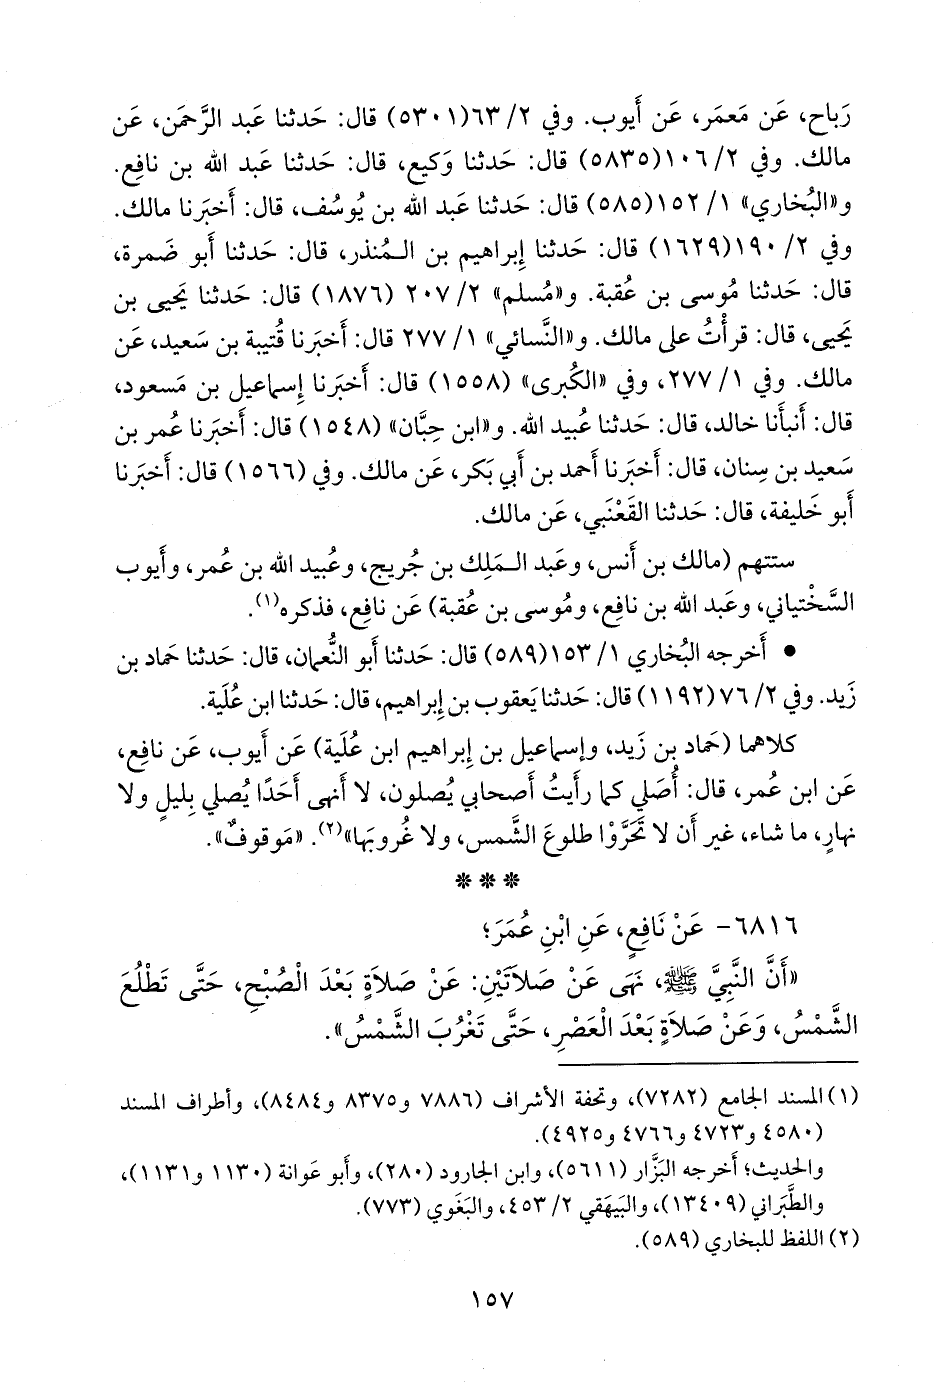 رَباح، عَن مَعمَر، عَن أَيوب. وفي ٢/ ٦٣(٥٣٠١) قال: حَدثنا عَبد الرَّحمَن، عَن
مالك. وفي ٢/ ١٠٦(٥٨٣٥) قال: حَدثنا وَكيع، قال: حَدثنا عَبد الله بن نافِع.
و«البُخاري» ١/ ١٥٢(٥٨٥) قال: حَدثنا عَبد الله بن يُوسُف، قال: أَخبَرنا مالك.
وفي ٢/ ١٩٠(١٦٢٩) قال: حَدثنا إِبراهيم بن الـمُنذر، قال: حَدثنا أَبو ضَمرة،
قال: حَدثنا مُوسى بن عُقبة. و«مُسلم» ٢/ ٢٠٧ (١٨٧٦) قال: حَدثنا يَحيى بن
يَحيى، قال: قرأْتُ على مالك. و«النَّسائي» ١/ ٢٧٧ قال: أَخبَرنا قُتيبة بن سَعيد، عَن
مالك. وفي ١/ ٢٧٧، وفي «الكُبرى» (١٥٥٨) قال: أَخبَرنا إِسماعيل بن مَسعود،
قال: أَنبأَنا خالد، قال: حَدثنا عُبيد الله. و«ابن حِبَّان» (١٥٤٨) قال: أَخبَرنا عُمر بن
سَعيد بن سِنان، قال: أَخبَرنا أَحمد بن أَبي بَكر، عَن مالك. وفي (١٥٦٦) قال: أَخبَرنا
أَبو خَليفة، قال: حَدثنا القَعْنَبي، عَن مالك.
ستتهم (مالك بن أَنس، وعَبد الـمَلِك بن جُريج، وعُبيد الله بن عُمر، وأَيوب
السَّخْتياني، وعَبد الله بن نافِع، ومُوسى بن عُقبة) عَن نافِع، فذكره(١).
• أَخرجه البُخاري ١/ ١٥٣(٥٨٩) قال: حَدثنا أَبو النُّعمان، قال: حَدثنا حَماد بن
زَيد. وفي ٢/ ٧٦(١١٩٢) قال: حَدثنا يَعقوب بن إِبراهيم، قال: حَدثنا ابن عُلَية.
كلاهما (حَماد بن زَيد، وإِسماعيل بن إِبراهيم ابن عُلَية) عَن أَيوب، عَن نافِع،
عَن ابن عُمر، قال: أُصَلي كما رأَيتُ أَصحابي يُصلون، لا أَنهى أَحَدًا يُصلي بِليلٍ ولا
نهارٍ، ما شاء، غير أَن لا تَحَرَّوْا طلوعَ الشَّمس، ولا غُروبَها»(٢). «مَوقوفٌ».
* * *
٦٨١٦- عَنْ نَافِعٍ، عَنِ ابْنِ عُمَرَ؛
«أَنَّ النَّبِيَّ ﷺ، نَهَى عَنْ صَلاَتَيْنِ: عَنْ صَلاَةٍ بَعْدَ الْصُبْحِ، حَتَّى تَطْلُعَ
الشَّمْسُ، وَعَنْ صَلاَةٍ بَعْدَ الْعَصْرِ، حَتَّى تَغْرُبَ الشَّمْسُ».
(١) المسند الجامع (٧٢٨٢)، وتحفة الأشراف (٧٨٨٦ و٨٣٧٥ و٨٤٨٤)، وأطراف المسند
(٤٥٨٠ و٤٧٢٣ و٤٧٦٦ و٤٩٢٥).
والحديث؛ أخرجه البَزَّار (٥٦١١)، وابن الجارود (٢٨٠)، وأَبو عَوانة (١١٣٠ و١١٣١)،
والطَّبَراني (١٣٤٠٩)، والبَيهَقي ٢/ ٤٥٣، والبَغَوي (٧٧٣).
(٢) اللفظ للبخاري (٥٨٩).
١٥٧